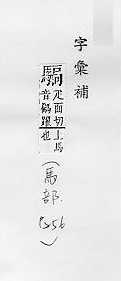 字彙補
疋面切上馬
音騙躍也
（馬部
）